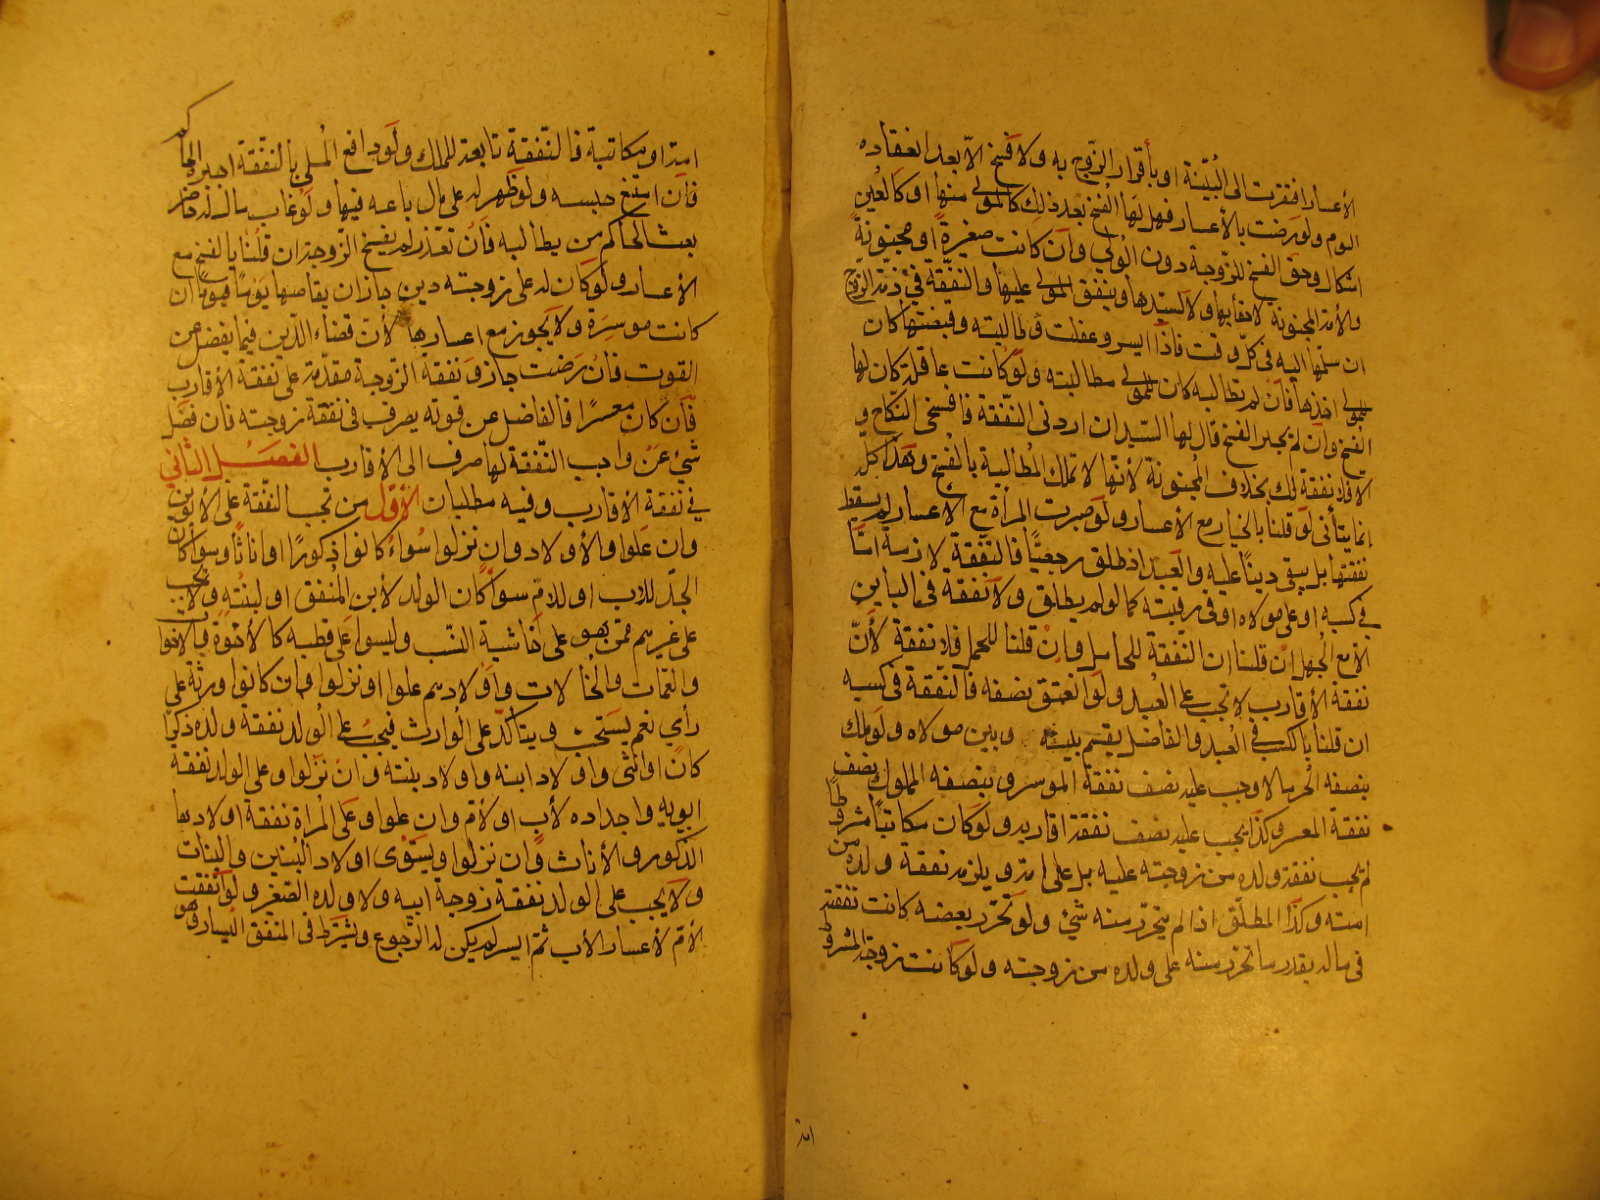 الأعسار افقرت الى البيّنة او بأقرار الزّوج به ولا فسخ الّا بعد انعقاده
اليوم ولو رضت بالأعسار فهل لها الفسخ بعد ذلك كالمولى منها او كالعنين
اشكال وحق الفسخ للزّوجة دون الولي وان كانت صغيرة او مجنونة
والأمة المجنونة لا خفا بها ولا لسيّدها وينفق المولى عليها والنّفقة في ذمّة الزّوج
ان سلّمها اليه في كلّ وقت فاذا ايسر وعقلت وطالبته وقبضتها كان
للمولى اخذها فان لم تطالبه كان للمولى مطالبته ولو كانت عاقلة كان لها
الفسخ وان لم يجبر الفسخ قال لها السّيد ان اردتى النّفقة فافسخى النّكاح و
الّا فلا نفقة لك بخلاف المجنونة لأنها لا تملك المطالبة بالفسخ وهذا كلّه
انما يتأتى لو قلنا بالخيار مع الأعسار ولو صبرت المرأة مع الأعسار لم يسقط
نفقتها بل يبقى دينًا عليه والعبد اذ طلق رجعيًّا فالنفقة لازمة امّا
في كسبه او على مولاه او في رقبته كما لو لم يطلق ولا نفقة في الباين
الّا مع الحمل ان قلنا ان النّفقة للحامل وان قلنا للحمل فلا نفقة لأنّ
نفقة الأقارب لا تجب على العبد ولو انعتق نصفه فالنّفقة في كسبه
ان قلنا بالكسب في العبد والفاضل يقسم بينه وبين مولاه ولو ملك
بنصفه الحر مالا وجب عليه نصف نفقة الموسر وبنصفه المملوك نصف
نفقة المعسر وكذا يجب عليه نصف نفقة اقاربه ولو كان مكاتبًا مشروطًا
لم يجب نفقة ولده من زوجته عليه بل على امة ويلزمه نفقة ولده من
امته وكذا المطلّق اذا لم يتحرّر منه شئ ولو تحرّر بعضه كانت نفقته
في ماله بقدر ما تحرر منه على ولده من زوجته ولو كانت زوجة المشروط
امة
امة او مكاتبة فالنّفقة تابعة للملك ولو دافع الملي بالنّفقة اجبره الحاكم
فان امتنع حبسه ولو ظهر له على مال باعه فيها ولو غاب ماله حاضر
بعث الحاكم من يطالبه فان تعذّر لم يفسخ الزّوجة ان قلنا بالفسخ مع
الأعسار ولو كان له على زوجته دين جاز ان يقاصّها يومًا فيومًا ان
كانت موسرة ولا يجوز مع اعسارها لأنّ قضاء الدّين فيما يفضل عن
القوت فان رضت جاز ونفقة الزّوجة مقدّمة على نفقة الأقارب
فان كان معسرًا فالفاضل عن قوته يصرف في نفقة زوجته فان فضل
شئ عن واجب النّفقة لها صرف الى الأقارب الفصل الثّاني
في نفقة الأقارب وفيه مطلبان الأوّل من تجب النّفقة على الأبوين
وان علوا والأولاد وان نزلوا سواء كانوا ذكورًا او اناثًا وسوآ كان
الجدّ للاب او للامّ سوآ كان الولد لأبن المنفق او لبنته ولا يجب
على غيرهم ممّن هو على حاشية النّسب وليسوا على قطبه كالأخوة والأخوات
والعمات والخالات واولادهم علوا او نزلوا وان كانوا ورثة على
رأي نعم يستحب ويتأكد على الوارث فيجب على الوالد نفقة ولده ذكرًا
كان او انثى واولاد ابنه واولاد بنته وان نزلوا وعلى الولد نفقة
ابويه واجداده لأب او لأمّ وان علوا وعلى المرأة نفقة اولادها
الذكور والأناث وان نزلوا ويستوى اولاد البنين والبنات
ولا يجب على الولد نفقة زوجة ابيه ولا ولده الصّغير ولو انفقت
الأمّ لأعسار الأب ثمّ ايسر لم يكن لها الرّجوع ويشترط في المنفق اليسار وهو